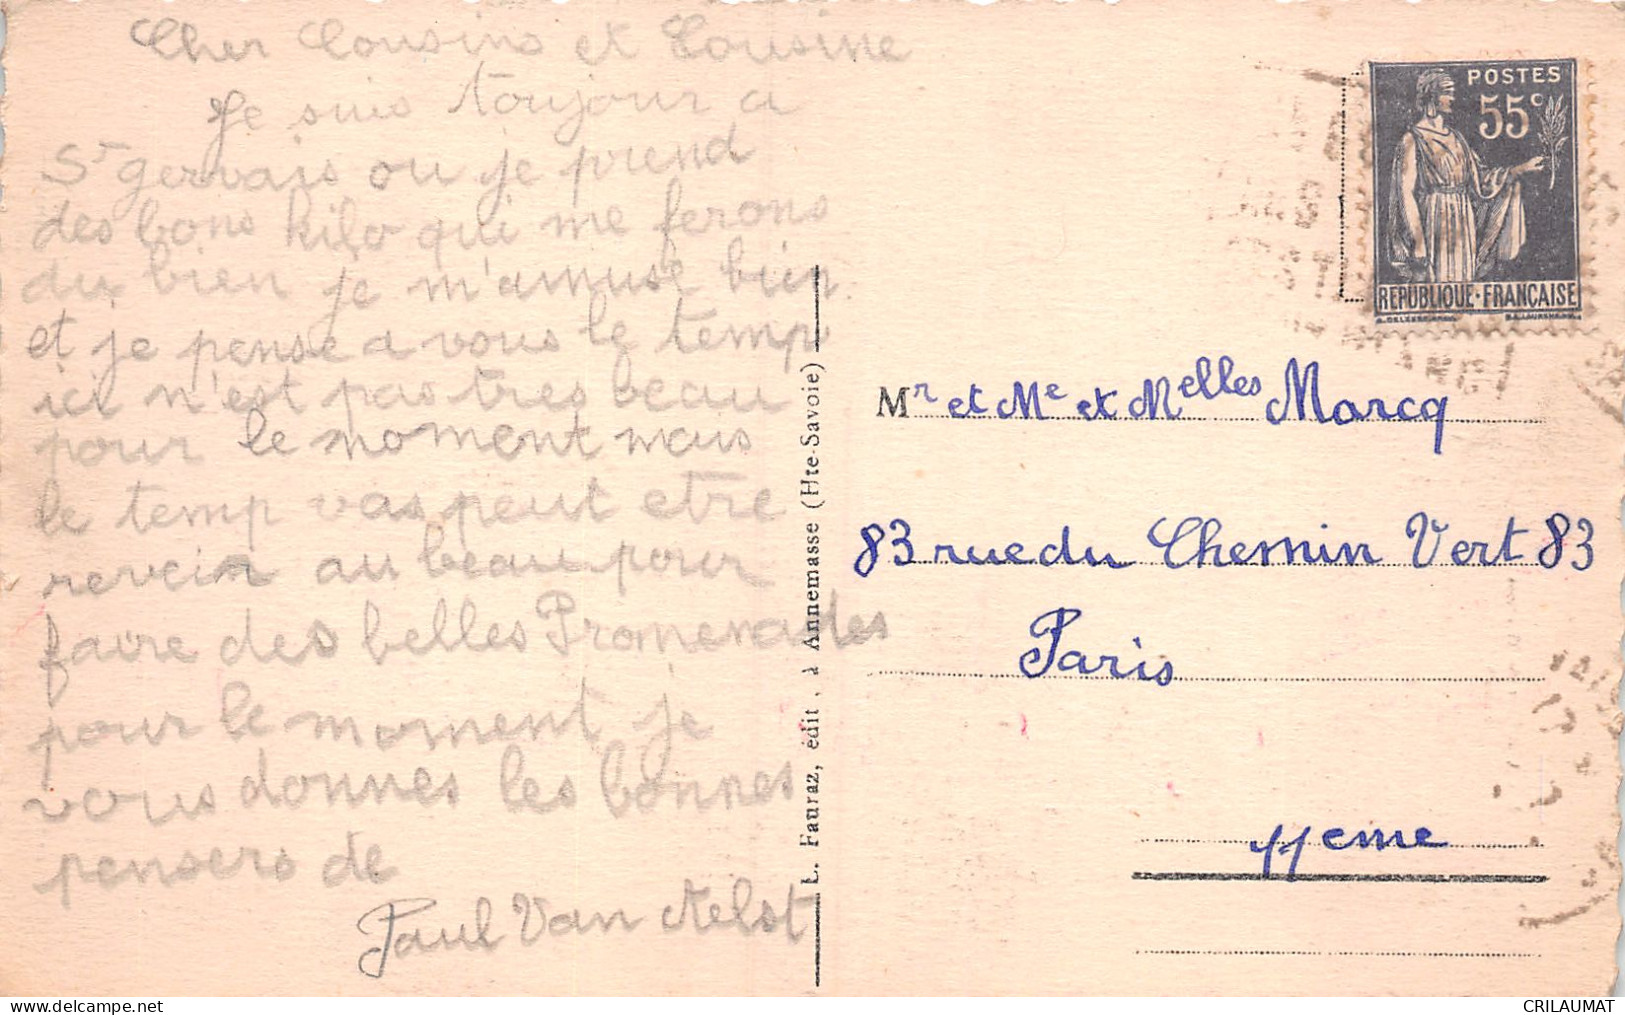 Cher Cousins et Cousine
Je suis toujour a
St gervais ou je prend
des bons kilo qui me ferons
du bien je m'amuse bien
et je pense a vous le temp
ici n'est pas tres beau
pour le moment mais
le temp vas peut etre
reveir au beau pour
faire des belles Promenades
pour le moment je
vous donnes les bonnes
pensers de
Paul Van Aelst
L. Fauraz, édit, à Annemasse (Hte-Savoie)
POSTES
55c
REPUBLIQUE·FRANÇAISE
Mr et Me et Melles Marcq
83 rue du Chemin Vert 83
Paris
11eme
CRILAUMAT